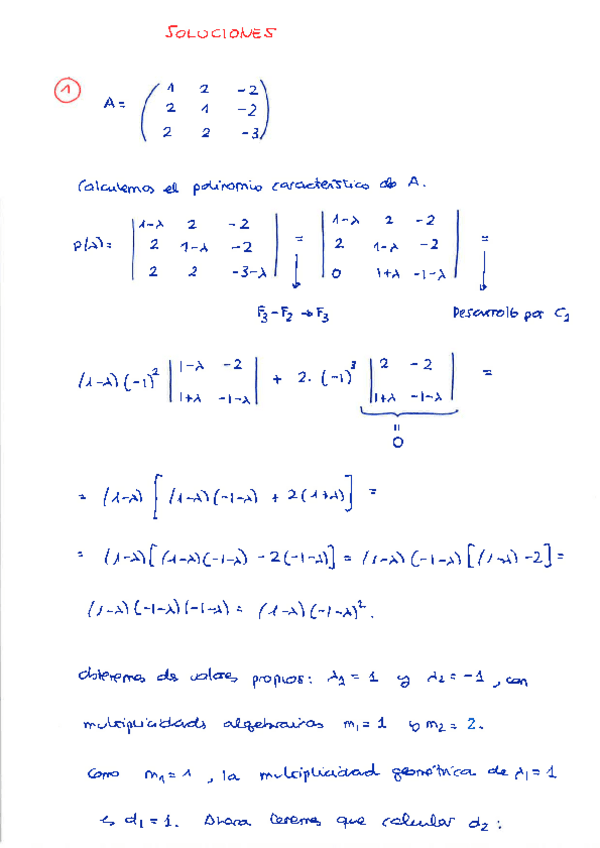 SOLUCIONES
1
A = ( 1 2 -2
2 1 -2
2 2 -3 )
Calculemos el polinomio característico de A.
p(λ) = | 1-λ 2 -2 | = | 1-λ 2 -2 | =
| 2 1-λ -2 | | 2 1-λ -2 |
| 2 2 -3-λ | | 0 1+λ -1-λ |
F₃-F₂→F₃ Desarrollo por C₁
(1-λ)(-1)² | 1-λ -2 | + 2·(-1)³ | 2 -2 | =
| 1+λ -1-λ | | 1+λ -1-λ |
=
0
= (1-λ) [ (1-λ)(-1-λ) + 2(1+λ) ] =
= (1-λ)[ (1-λ)(-1-λ) - 2(-1-λ) ] = (1-λ)(-1-λ)[(1-λ) -2] =
(1-λ)(-1-λ)(-1-λ) = (1-λ)(-1-λ)².
obtenemos dos valores propios: λ₁ = 1 y λ₂ = -1, con
multiplicidades algebraicas m₁ = 1 y m₂ = 2.
Como m₁ = 1, la multiplicidad geométrica de λ₁ = 1
es d₁ = 1. Ahora tenemos que calcular d₂: